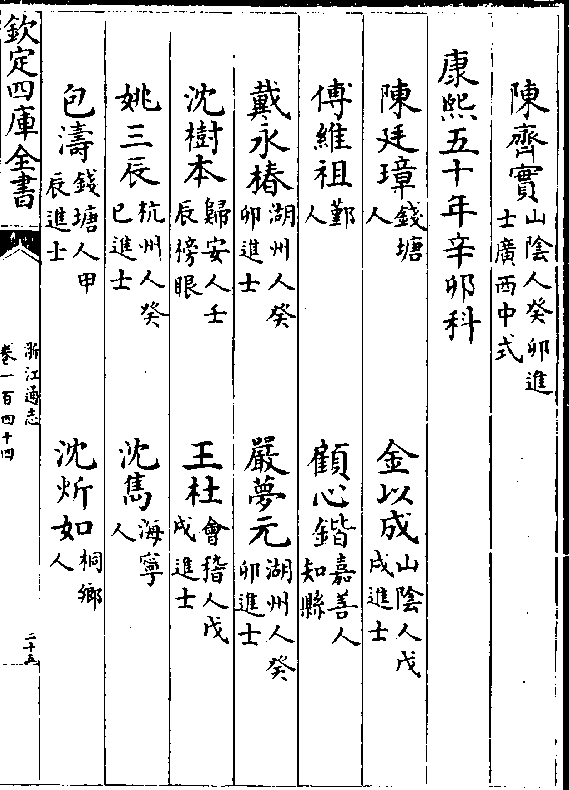 陳齊實山陰人癸卯進士廣西中式
康熙五十年辛卯科
陳廷璋錢塘人 金以成山陰人戊戌進士
傅維祖鄞人 顧心鍇嘉善人知縣
戴永椿湖州人癸卯進士 嚴夢元湖州人癸卯進士
沈樹本歸安人壬辰榜眼 王杜會稽人戊戌進士
姚三辰杭州人癸巳進士 沈雋海寧人
包濤錢塘人甲辰進士 沈炘如桐鄉人
欽定四庫全書
浙江通志
卷一百四十四
二十五